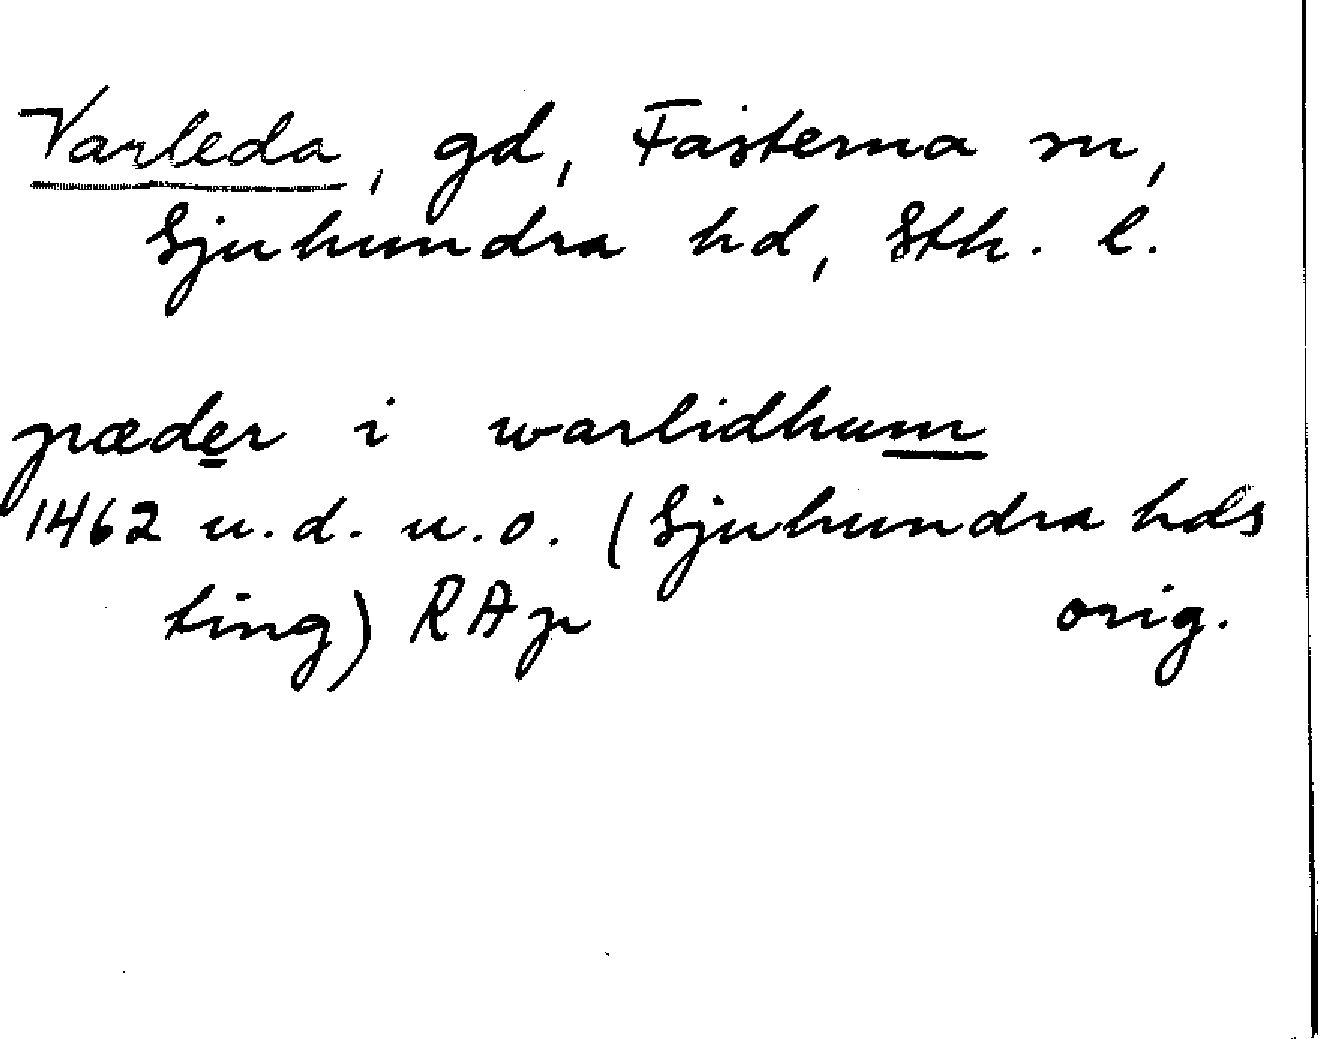 Varleda, gd, Fasterna sn,
Sjuhundra hd, Sth. l.
pæder i warlidhum
1462 u.d. u.o. (Sjuhundra hds
ting) RAp orig.